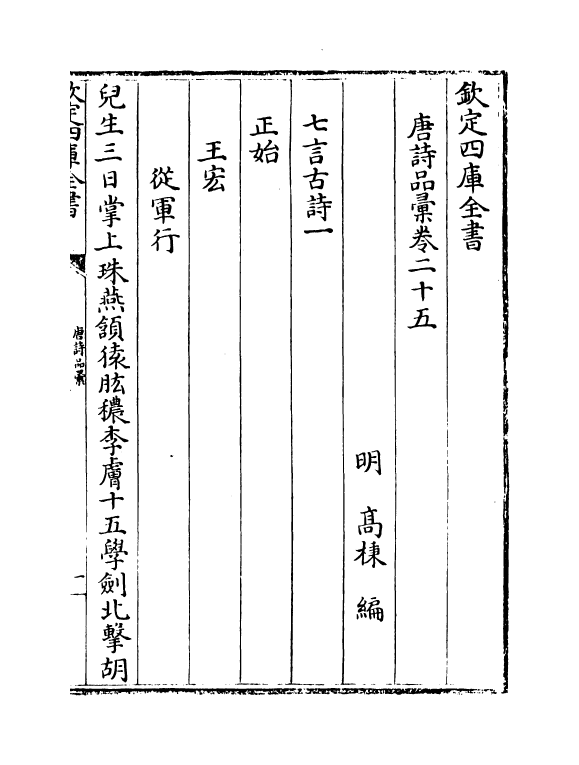 欽定四庫全書
唐詩品彚卷二十五
明 髙棅 編
七言古詩一
正始
王宏
從軍行
兒生三日掌上珠燕頷猿肱穠李膚十五學劍北擊胡
欽定四庫全書
唐詩品彚
一